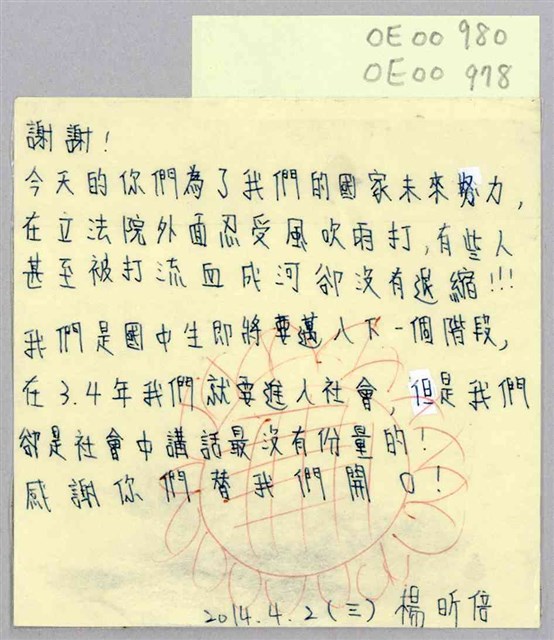 OE00 980
OE00 978
謝謝!
今天的你們為了我們的國家未來努力,
在立法院外面忍受風吹雨打,有些人
甚至被打流血成河卻沒有退縮!!!
我們是國中生即將要邁入下一個階段,
在3.4年我們就要進入社會,但是我們
卻是社會中講話最沒有份量的!
感謝你們替我們開口!
2014.4.2(三) 楊昕倍